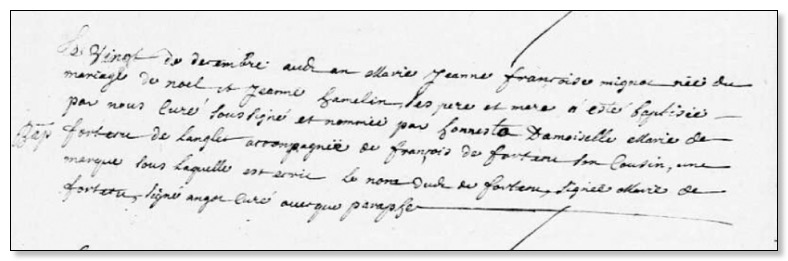 Le Vingt de decembre audt an Marie Jeanne françoise mignot née du
mariage de noel et Jeanne hamelin, ses pere et mere a esté baptisée
par nous Curé soussigné et nommée par honneste Damoiselle Marie de
Bap fortecu de Langlet accompagnée de françois de fortecu son Cousin, une
marque sous laquelle est ecrit Le nom dudt de fortecu, signee Marie de
fortecu, signé angot Curé avecque paraphe